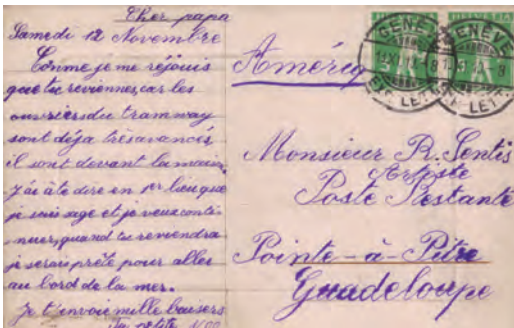 Cher papa
Samedi 12 Novembre
Comme je me rejouis
que tu reviennes, car les
ouvriers du tramway
sont déja très avancés
il sont devant la mairie
J'ai à te dire en 1er lieu que
je suis sage et je veux conti-
nuer, quand tu reviendra
je serais prète pour aller
au bord de la mer.
Je t'envoie mille baisers
Ta petite
Amériq
Monsieur R. Sentis
Artiste
Poste Restante
Pointe-à-Pitre
Guadeloupe
HELVETIA
GENÈVE
EXP. LETT.
GENÈVE
EXP. LETT.